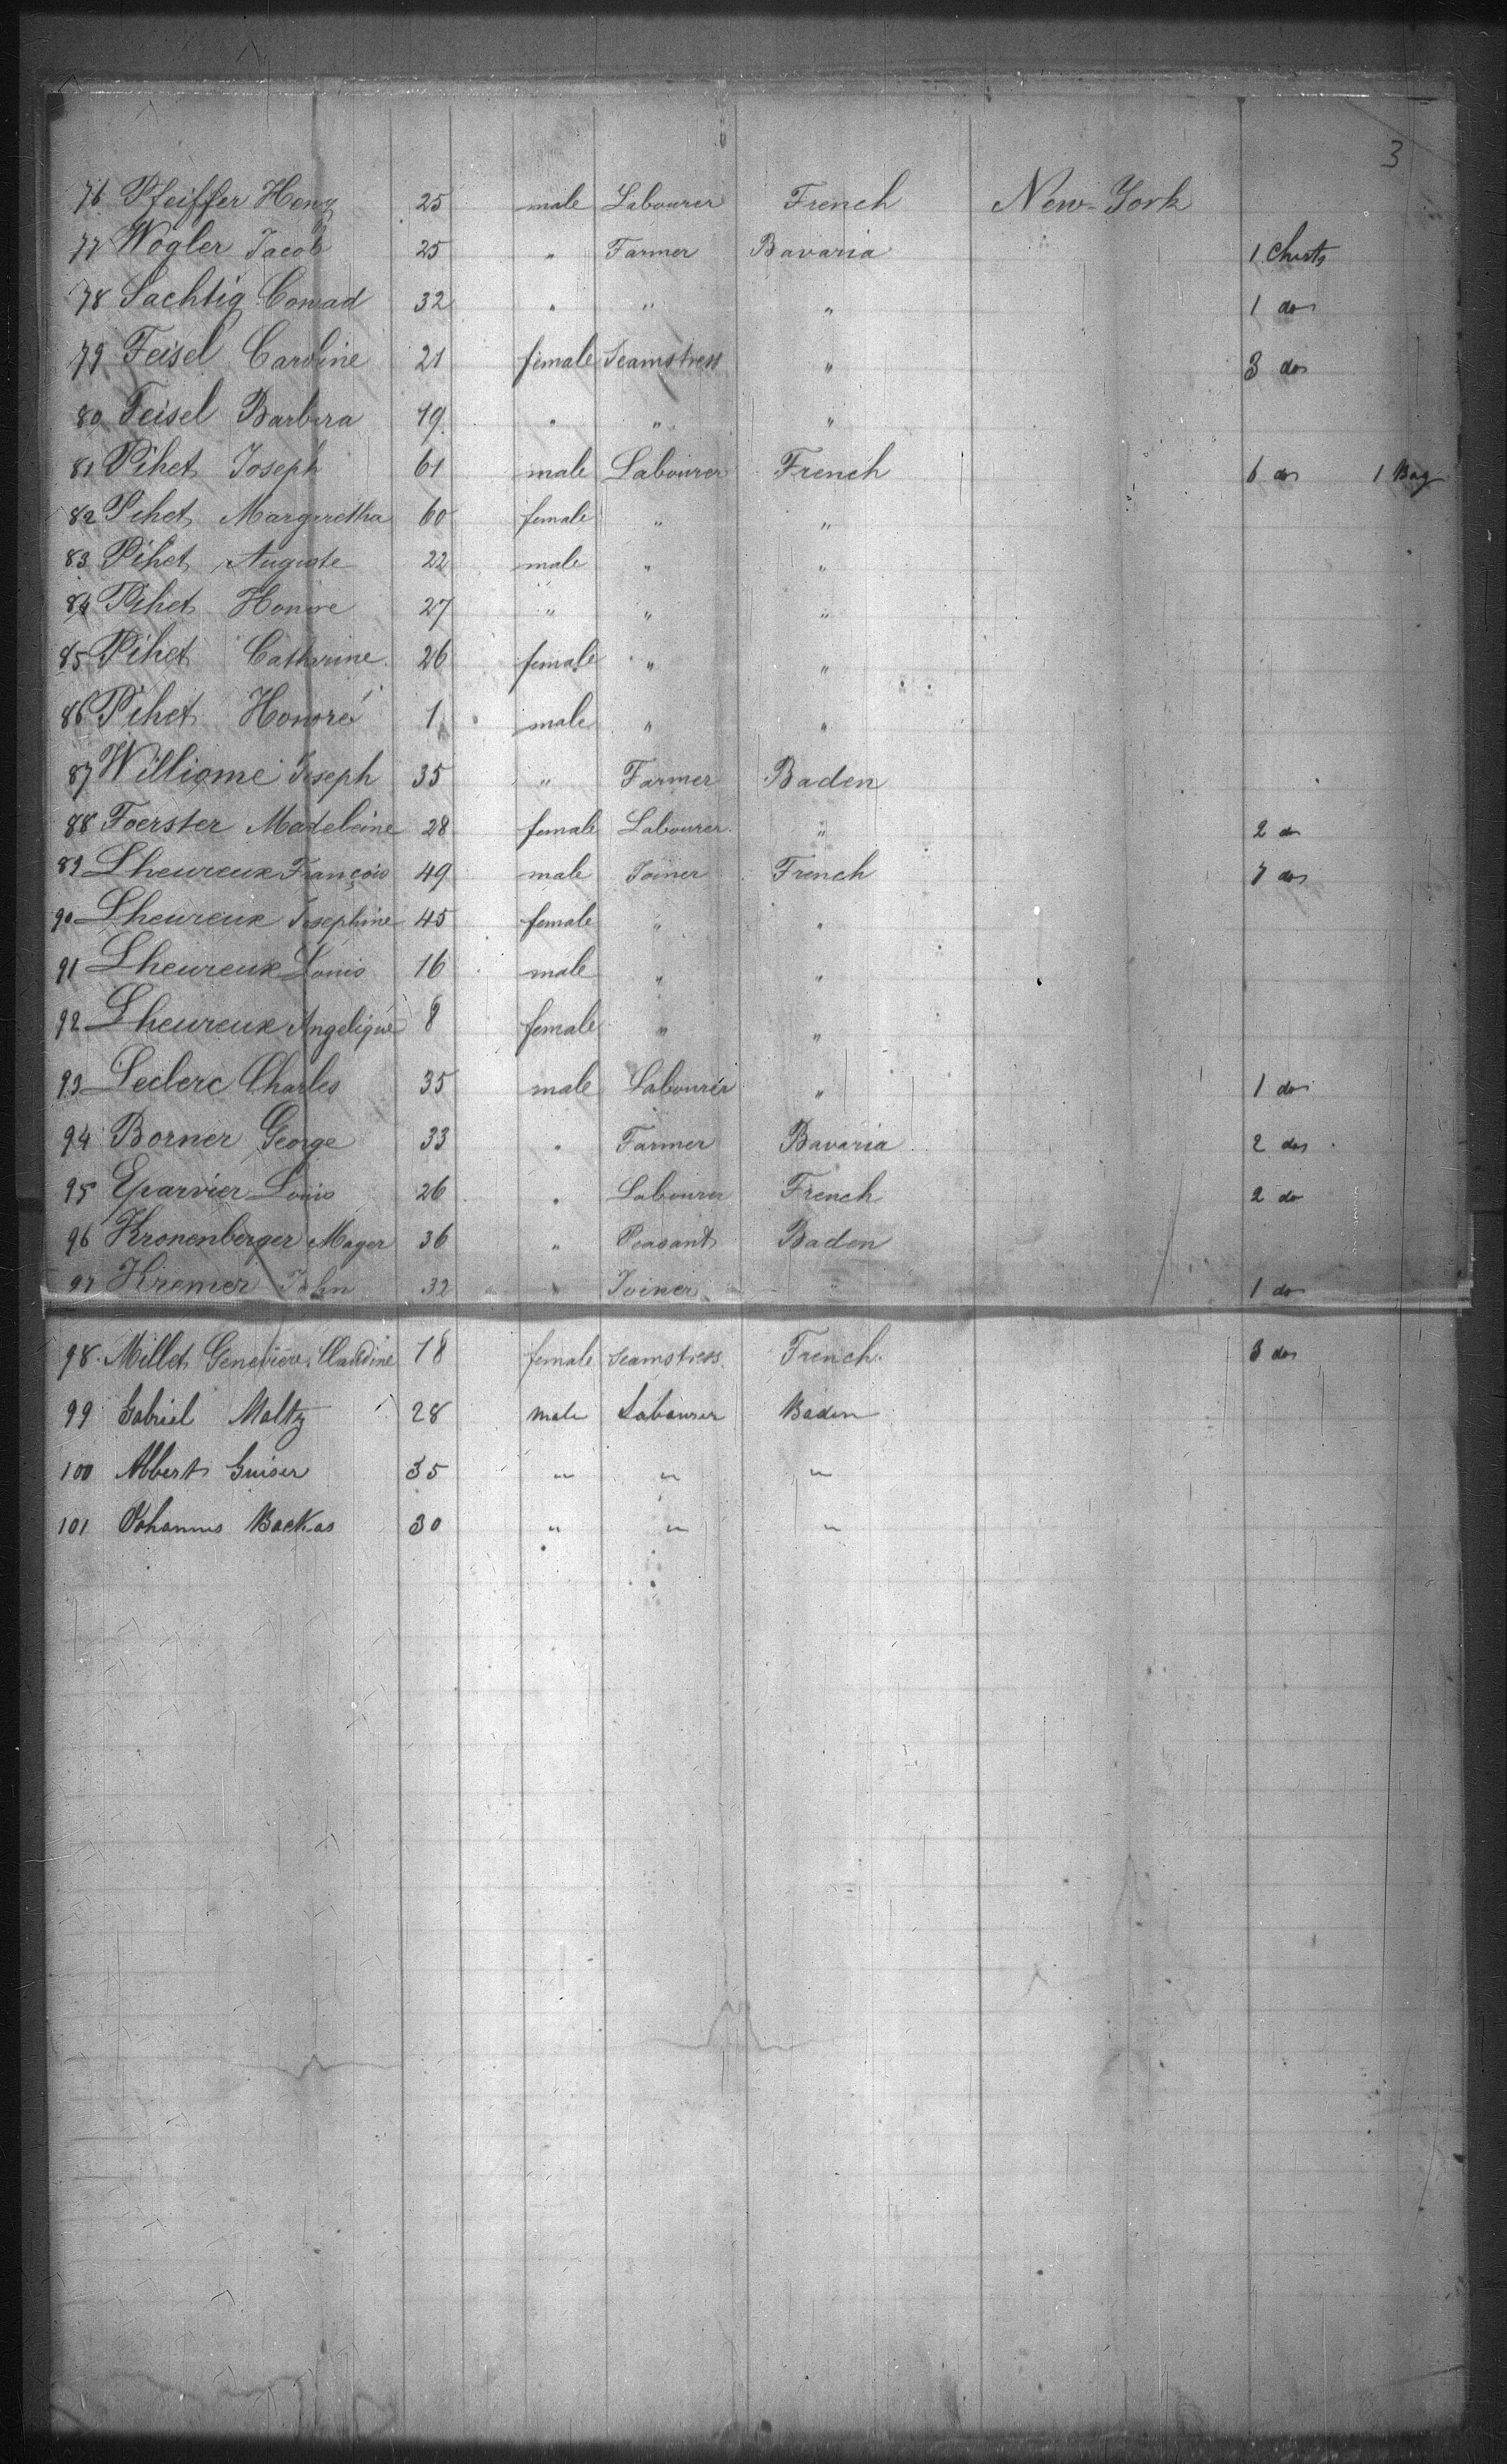 3
76 Pfeiffer Henry 25 male Labourer French New-York
77 Wogler Jacob 25 " Farmer Bavaria 1 Chests
78 Sachtig Conrad 32 " " " 1 do
79 Feisel Caroline 21 female Seamstress " 3 do
80 Feisel Barbera 19 " " "
81 Pihet Joseph 61 male Labourer French 6 do 1 Bag
82 Pihet Margeretha 60 female " "
83 Pihet Auguste 22 male " "
84 Pihet Honore 27 " " "
85 Pihet Catherine 26 female " "
86 Pihet Honoré 1 male " "
87 Williome Joseph 35 " Farmer Baden
88 Foerster Madeleine 28 female Labourer " 2 do
89 Lheureux François 49 male Joiner French 7 do
90 Lheureux Josephine 45 female " "
91 Lheureux Louis 16 male " "
92 Lheureux Angelique 8 female " "
93 Leclerc Charles 35 male Labourer " 1 do
94 Borner George 33 " Farmer Bavaria 2 do
95 Eparvier Louis 26 " Labourer French 2 do
96 Kronenberger Mager 36 " Peasant Baden
97 Kremer John 32 " Joiner " 1 do
98. Millet Genevière Claudine 18 female Seamstress French. 3 do
99 Gabriel Maltz 28 male Labourer Baden
100 Albert Guiser 35 " " "
101 Johannes Backas 30 " " "